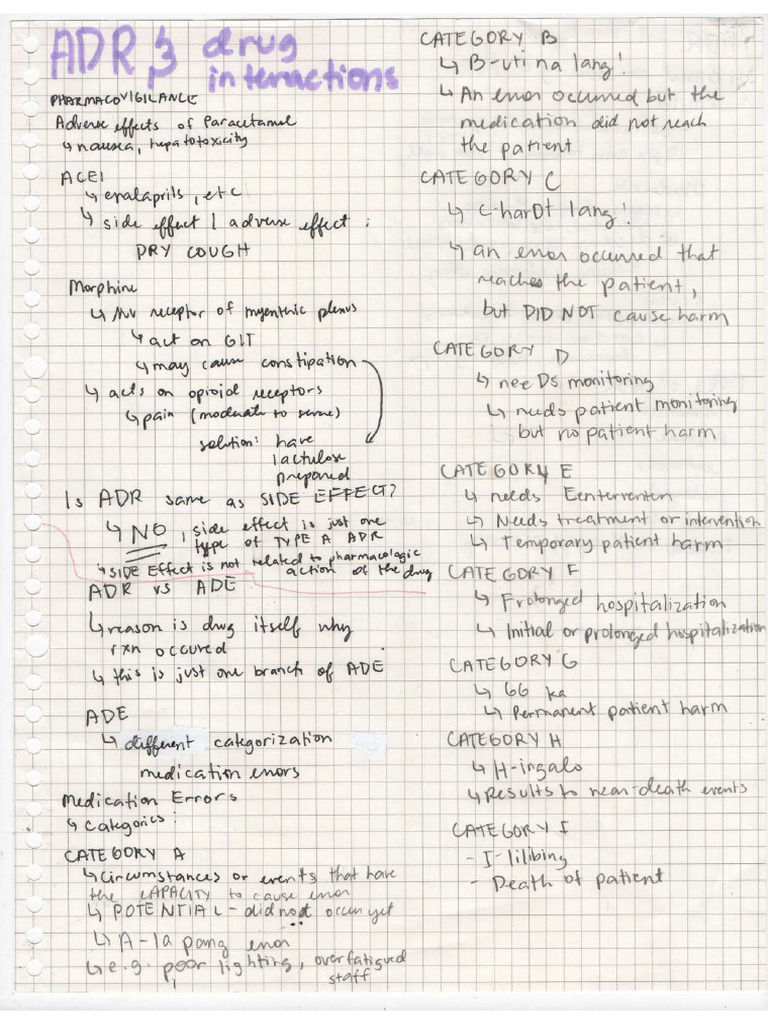 ADR & drug
interactions
PHARMACOVIGILANCE
Adverse effects of Paracetamol
↳ nausea, hepatotoxicity
ACEI
↳ enalaprils, etc
↳ side effect / adverse effect :
DRY COUGH
Morphine
↳ Mu receptor of myenthric plexus
↳ act on GIT
↳ may cause constipation
↳ acts on opioid receptors
↳ pain (moderate to severe)
solution: have
lactulose
prepared
Is ADR same as SIDE EFFECT?
↳ NO, side effect is just one
type of TYPE A ADR
↳ SIDE Effect is not related to pharmacologic
action of the drug
ADR vs ADE
↳ reason is drug itself why
rxn occured
↳ this is just one branch of ADE
ADE
↳ different categorization
medication errors
Medication Errors
↳ Categories :
CATEGORY A
↳ Circumstances or events that have
the CAPACITY to cause error
↳ POTENTIAL - did not occur yet
↳ A-la pang error
↳ e.g. poor lighting, overfatigued
staff
CATEGORY B
↳ B-uti na lang!
↳ An error occurred but the
medication did not reach
the patient
CATEGORY C
↳ C-harDt lang!
↳ an error occurred that
reaches the patient,
but DID NOT cause harm
CATEGORY D
↳ neeDs monitoring
↳ needs patient monitoring
but no patient harm
CATEGORY E
↳ needs Eenterventen
↳ Needs treatment or intervention
↳ Temporary patient harm
CATEGORY F
↳ Frolonged hospitalization
↳ Initial or prolonged hospitalization
CATEGORY G
↳ GG ka
↳ Permanent patient harm
CATEGORY H
↳ H-ingalo
↳ Results to near-death events
CATEGORY I
- I-lilibing
- Death of patient